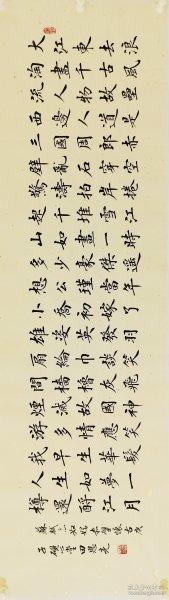 大江東去浪
淘盡千古風
流人物故壘
西邊人道是
三國周郎赤
壁亂石穿空
驚濤拍岸捲
起千堆雪江
山如畫一時
多少豪傑遙
想公瑾當年
小喬初嫁了
雄姿英發羽
扇綸巾談笑
間檣櫓灰飛
煙滅故國神
遊多情應笑
我早生華髮
人生如夢一
樽還酹江月
蘇軾念奴嬌赤壁懷古庚
子 田恩亮